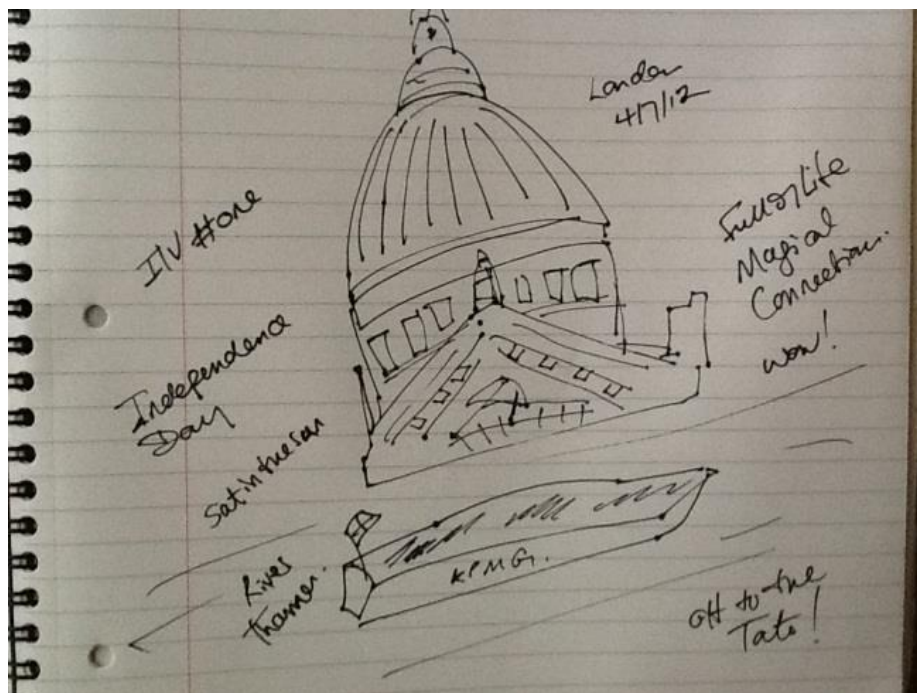 London
4/7/12
I/V #one
Full of Life
Magical
Connection.
wow!
Independence
Day
Sat in the sun
River
Thames.
KPMG.
off to the
Tate!